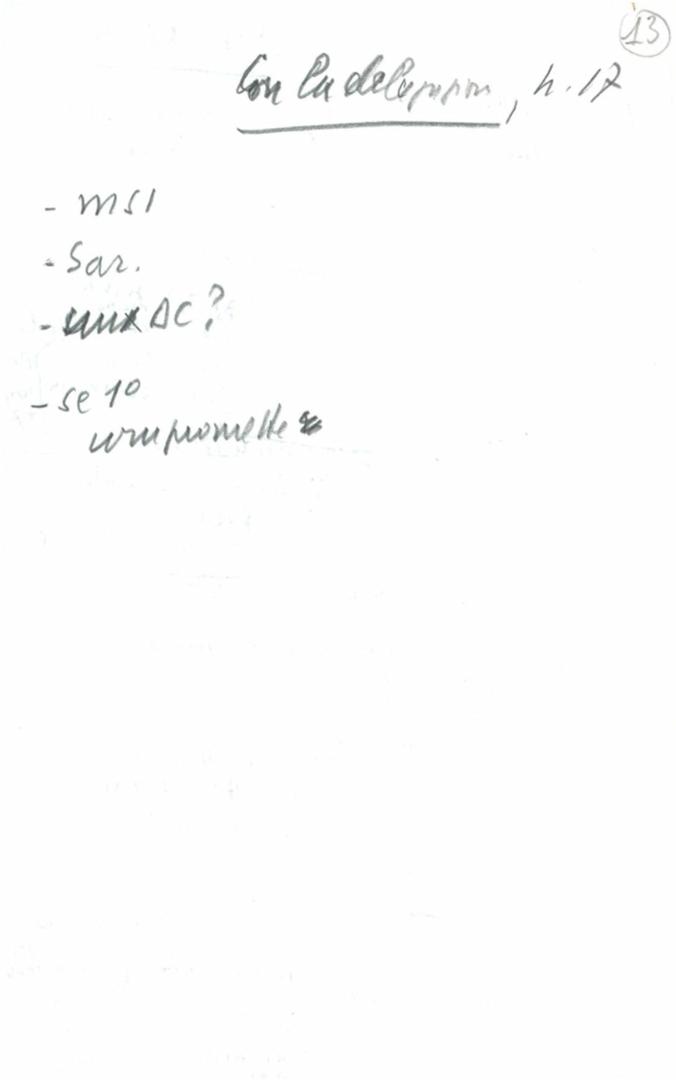 13
Con la delegazione, h. 17
- MSI
- Sar.
- DC?
- se 1º
compromette